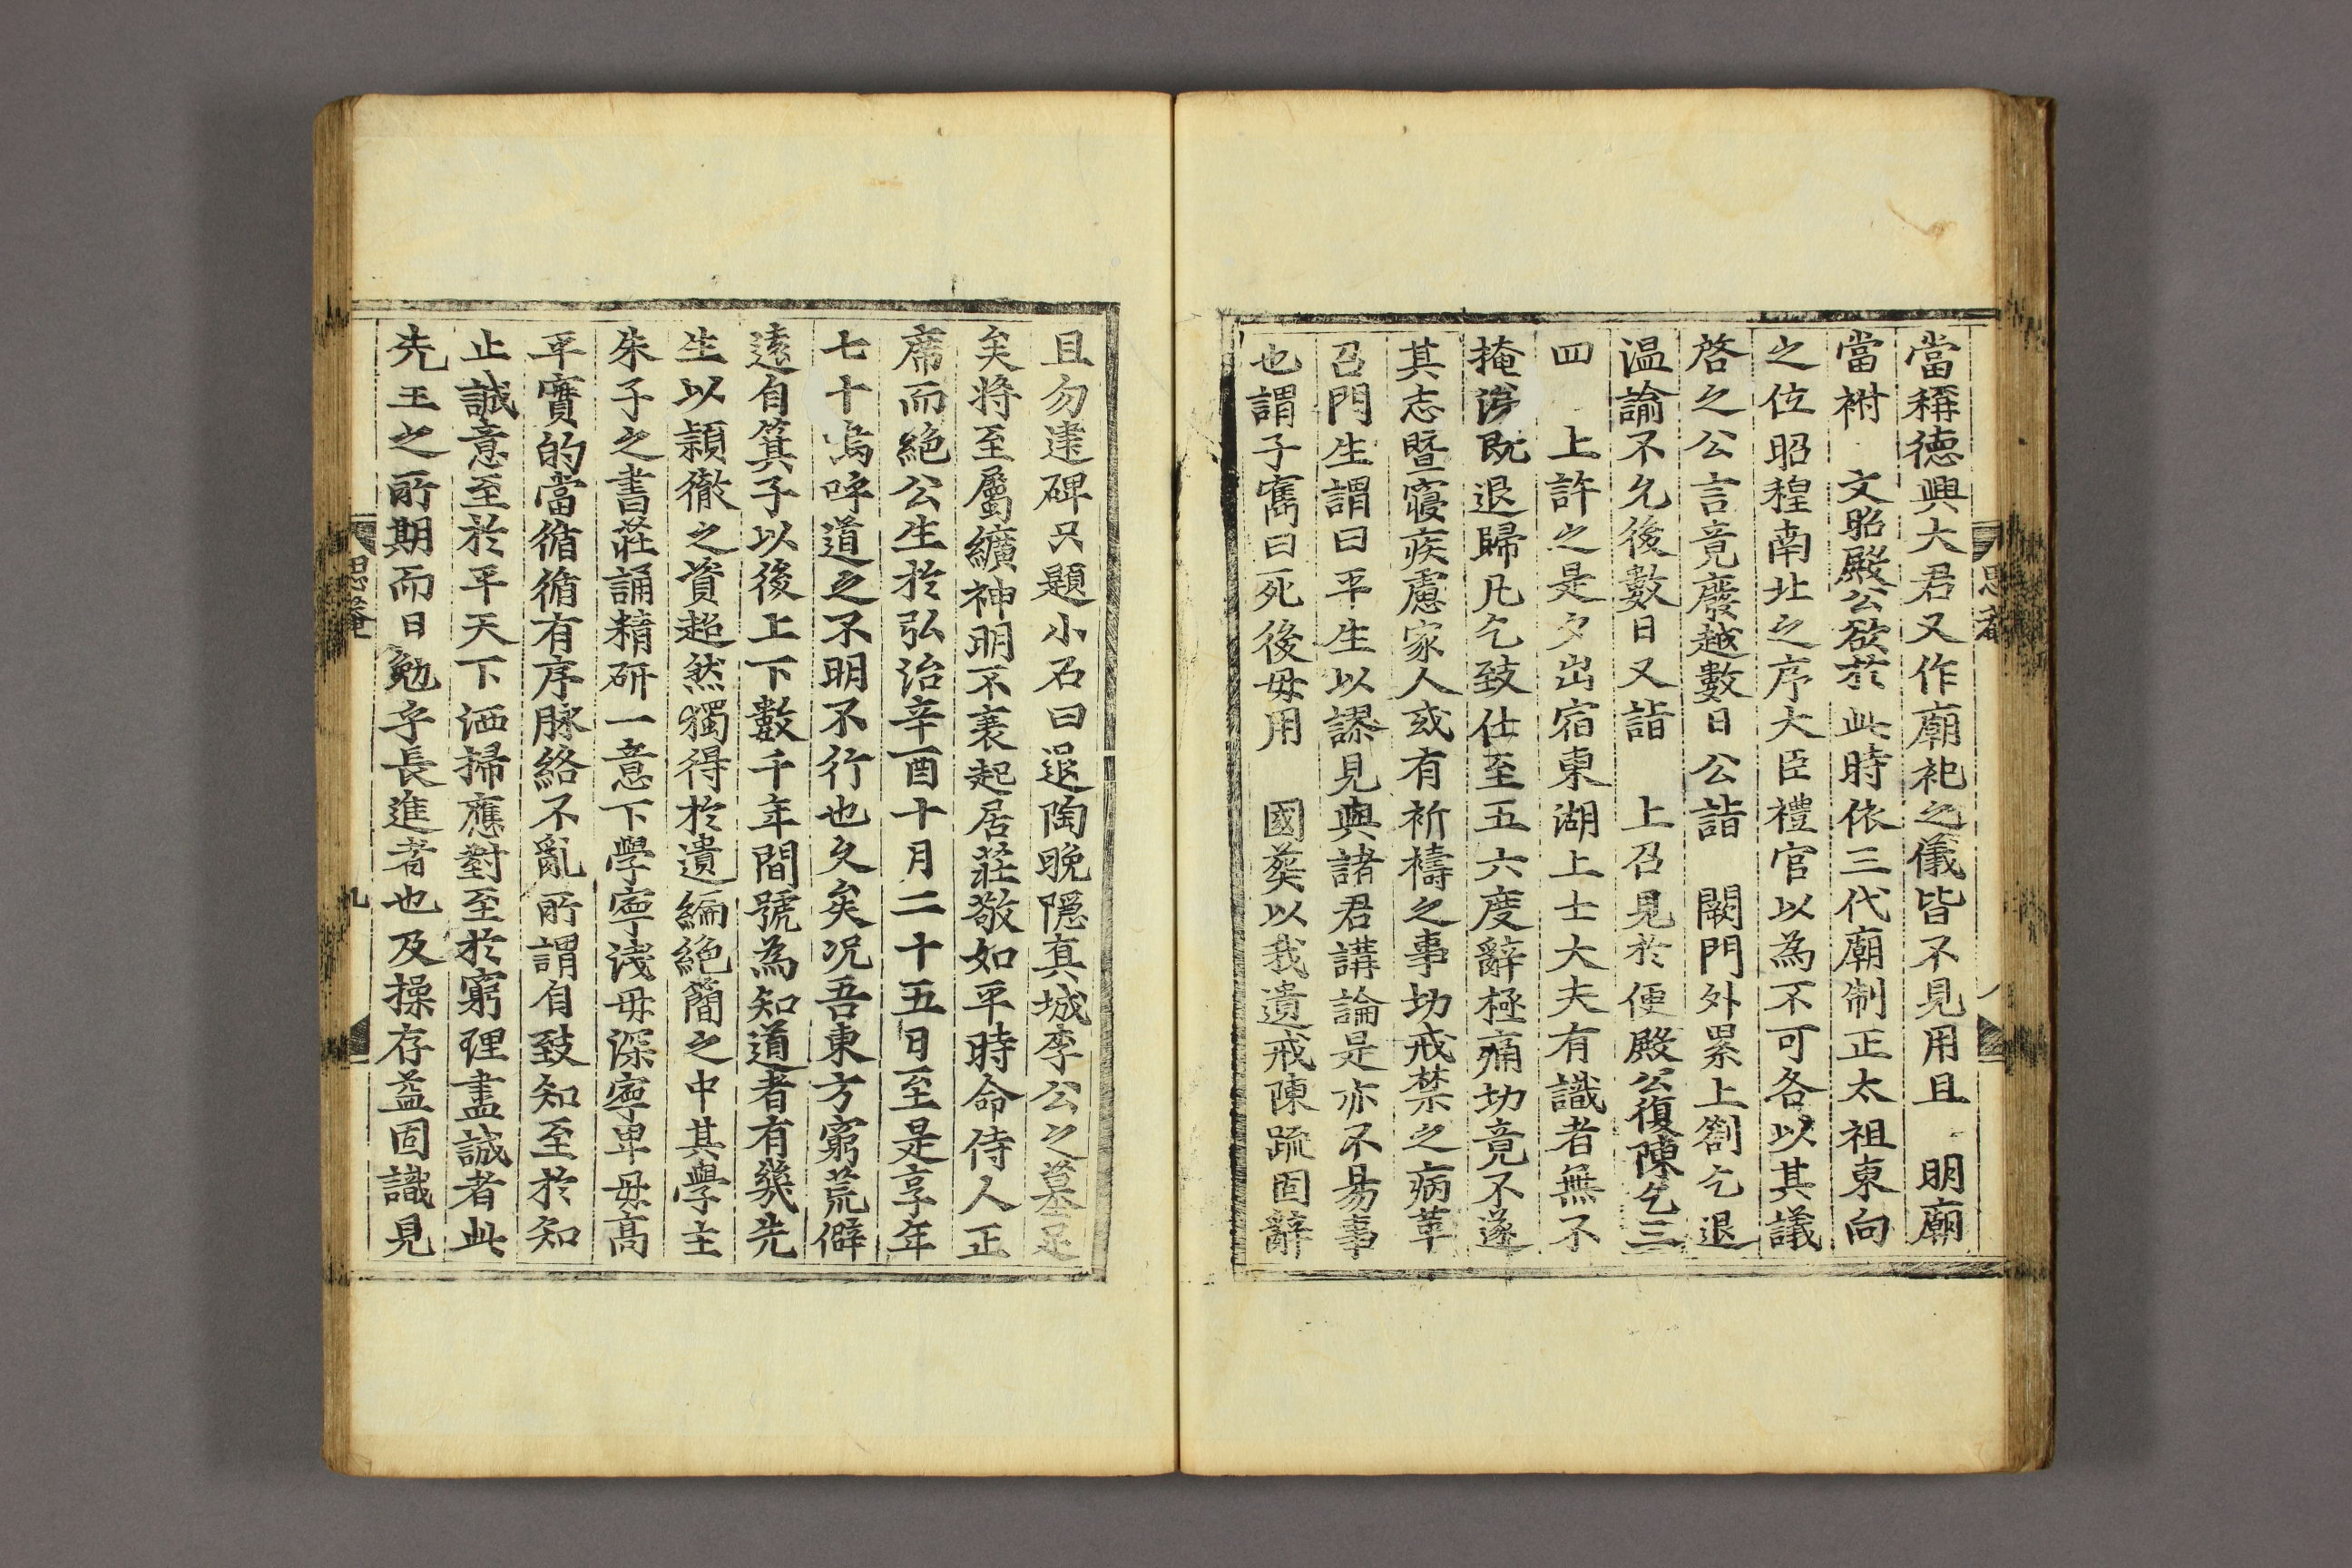 當稱德興大君又作廟祀之儀皆不見用且 明廟
當祔 文昭殿公欲於此時依三代廟制正太祖東向
之位昭穆南北之序大臣禮官以為不可各以其議
啓之公言竟廢越數日公詣 闕門外累上劄乞退
溫諭不允後數日又詣 上召見於便殿公復陳乞三
四 上許之是夕出宿東湖上士大夫有識者無不
掩涕旣退歸凡乞致仕至五六度辭極痛切竟不遂
其志曁寢疾慮家人或有祈禱之事切戒禁之病革
召門生謂曰平生以謬見與諸君講論是亦不易事
也謂子寯曰死後毋用 國葬以我遺戒陳䟽固辭
思菴
八
且勿建碑只題小石曰退陶晚隱真城李公之墓足
矣將至屬纊神明不衰起居莊敬如平時命侍人正
席而絶公生於弘治辛酉十月二十五日至是享年
七十嗚呼道之不明不行也久矣况吾東方窮荒僻
遠自箕子以後上下數千年間號為知道者有幾先
生以穎徹之資超然獨得於遺編絶簡之中其學主
朱子之書莊誦精研一意下學寧淺毋深寧卑毋高
平實的當循循有序脉絡不亂所謂自致知至於知
止誠意至於平天下洒掃應對至於窮理盡誠者此
先王之所期而日勉乎長進者也及操存益固識見
思菴
九